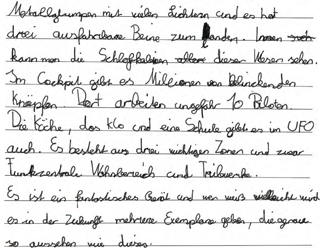 Metallklumpen mit vielen Lichtern und es hat
drei ausfahrbare Beine zum Landen. Innen
kann man die Schlafkabinen dieser Wesen sehen.
Im Cockpit gibt es Millionen von blinkenden
Knöpfen. Dort arbeiten ungefähr 10 Piloten.
Die Küche, das Klo und eine Schule gibt es in UFO
auch. Es besteht aus drei wichtigen Zonen und zwar
Funkzentrale Wohnbereich und Triebwerke.
Es ist ein fantastisches Gerät und wer weiß vielleicht wird
es in der Zukunft mehrere Exemplare geben, die genau
so aussehen wie dieses.